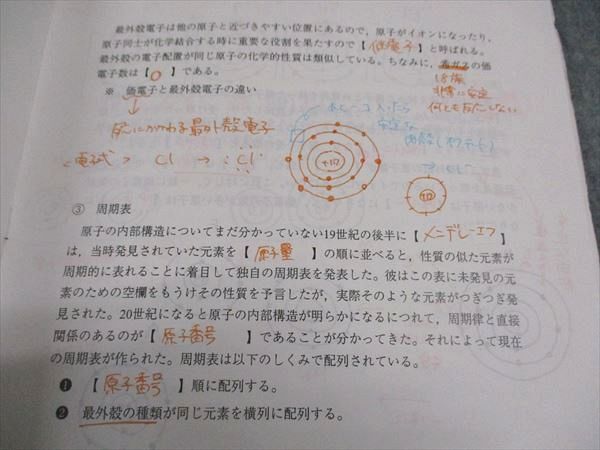 最外殻電子は他の原子と近づきやすい位置にあるので，原子がイオンになったり，
原子同士が化学結合する時に重要な役割を果たすので【価電子】と呼ばれる。
最外殻の電子配置が同じ原子の化学的性質は類似している。ちなみに，希ガスの価
電子数は【0】である。
18族
非常に安定
何とも反応しない
※ 価電子と最外殻電子の違い
反応にかかわる最外殻電子
電子式 > Cl →
+17
③ 周期表
原子の内部構造についてまだ分かっていない19世紀の後半に【メンデレーエフ】
は，当時発見されていた元素を【原子量】の順に並べると，性質の似た元素が
周期的に表れることに着目して独自の周期表を発表した。彼はこの表に未発見の元
素のための空欄をもうけその性質を予言したが，実際そのような元素がつぎつぎ発
見された。20世紀になると原子の内部構造が明らかになるにつれて，周期律と直接
関係のあるのが【原子番号】であることが分かってきた。それによって現在
の周期表が作られた。周期表は以下のしくみで配列されている。
❶ 【原子番号】順に配列する。
❷ 最外殻の種類が同じ元素を横列に配列する。